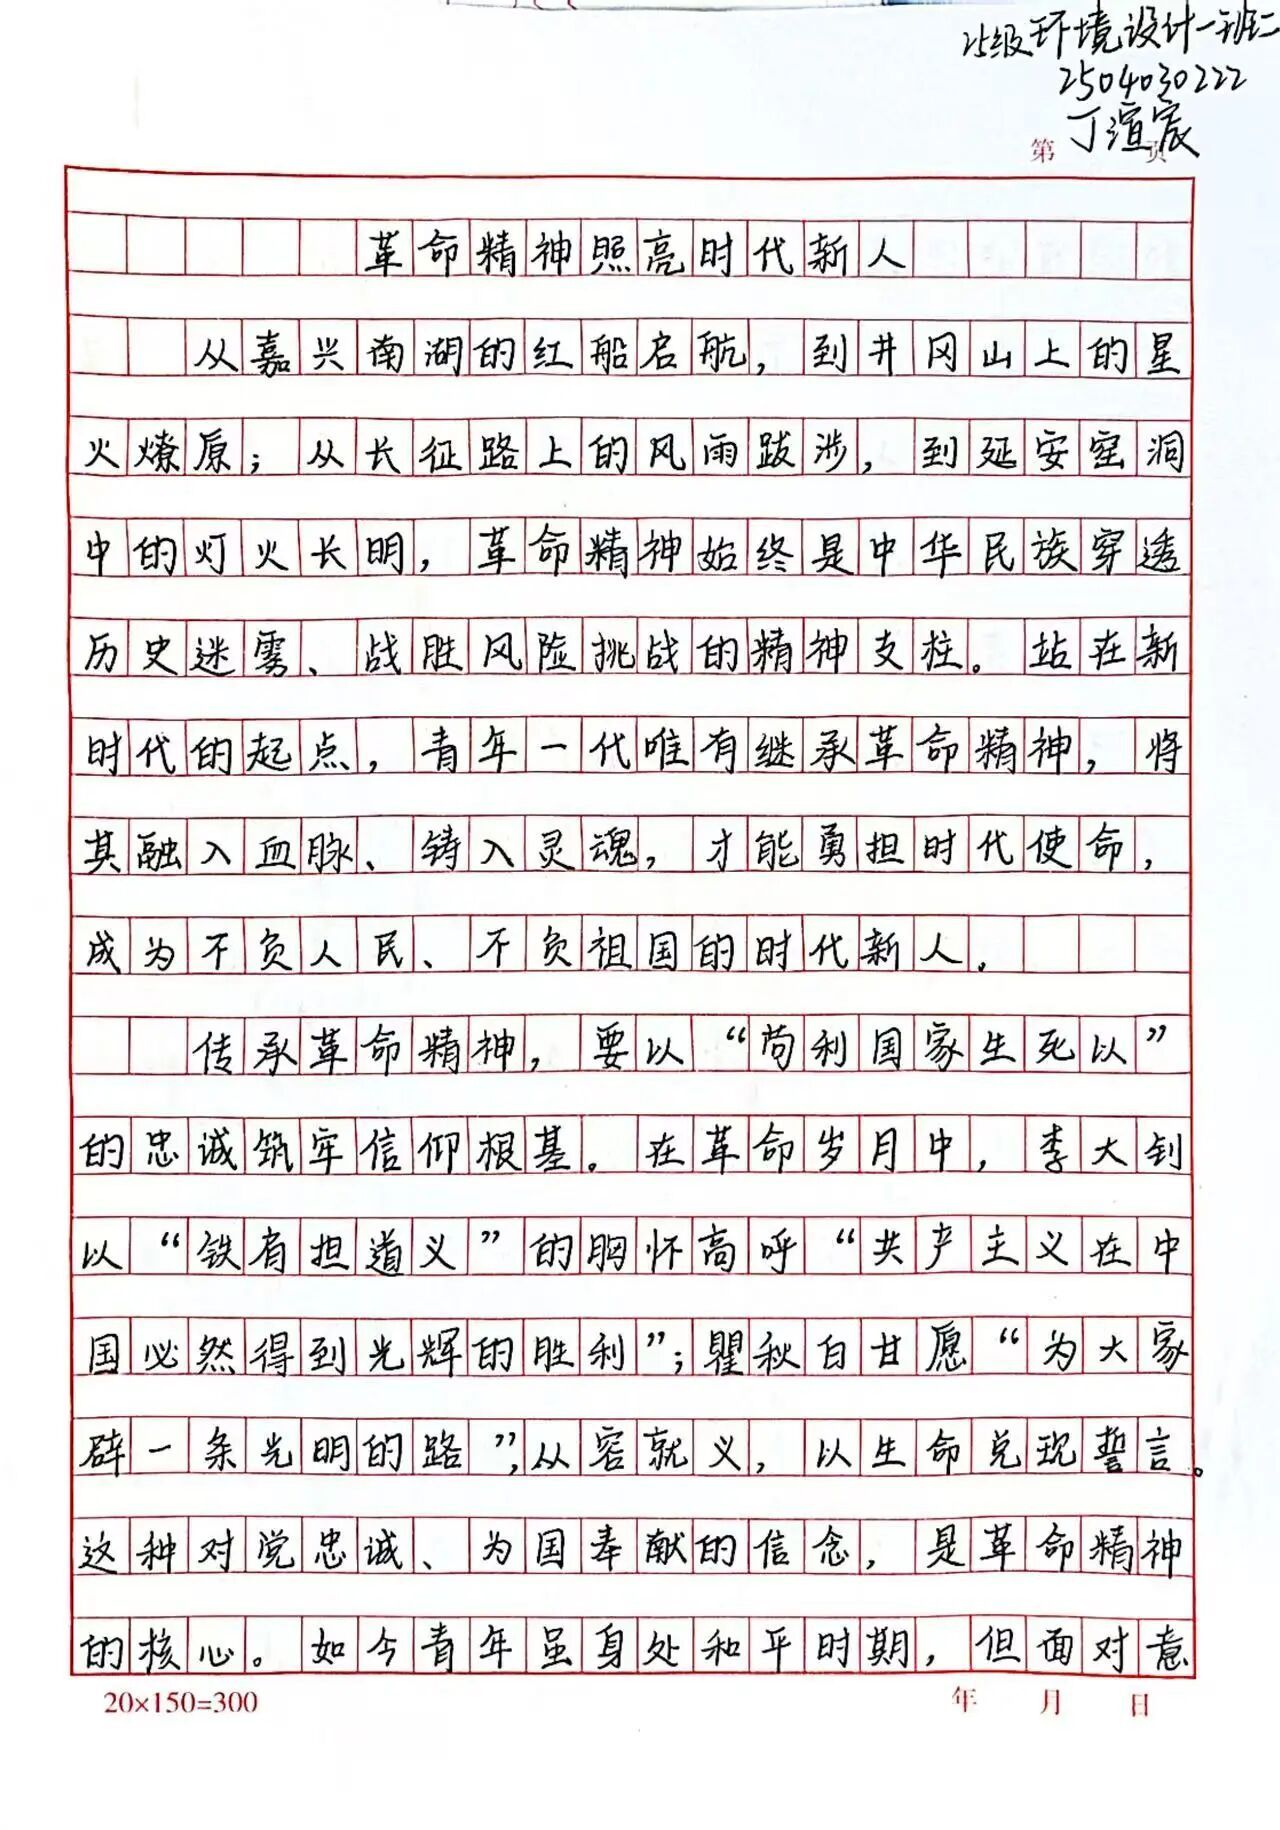 25级环境设计一班
2504030222
丁渲宸
第 页
革命精神照亮时代新人
从嘉兴南湖的红船启航，到井冈山上的星
火燎原；从长征路上的风雨跋涉，到延安窑洞
中的灯火长明，革命精神始终是中华民族穿透
历史迷雾、战胜风险挑战的精神支柱。站在新
时代的起点，青年一代唯有继承革命精神，将
其融入血脉、铸入灵魂，才能勇担时代使命，
成为不负人民、不负祖国的时代新人。
传承革命精神，要以“苟利国家生死以”
的忠诚筑牢信仰根基。在革命岁月中，李大钊
以“铁肩担道义”的胸怀高呼“共产主义在中
国必然得到光辉的胜利”；瞿秋白甘愿“为大家
辟一条光明的路”，从容就义，以生命兑现誓言。
这种对党忠诚、为国奉献的信念，是革命精神
的核心。如今青年虽身处和平时期，但面对意
20×150=300 年 月 日